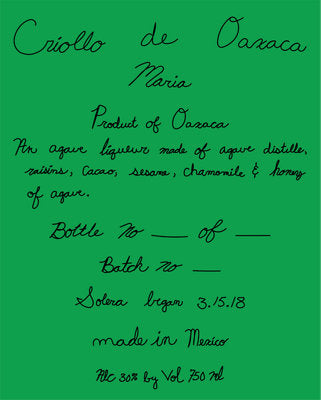 Criollo de Oaxaca
Maria
Product of Oaxaca
An agave liqueur made of agave distille,
raisins, cacao, sesame, chamomile & honey
of agave.
Bottle No ___ of ___
Batch no ___
Solera began 3.15.18
made in Mexico
Alc 30% by Vol 750 ml